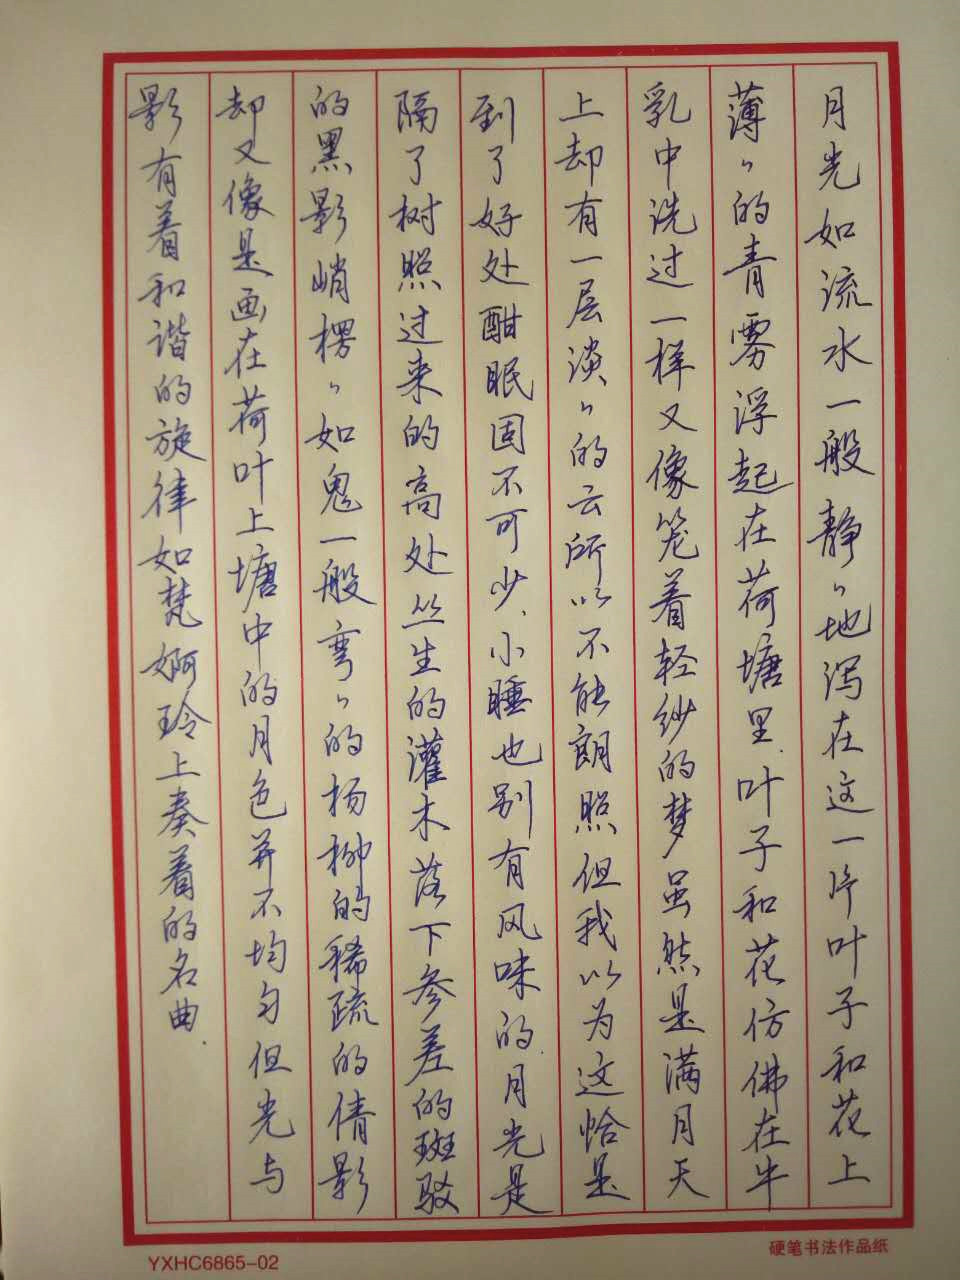 月光如流水一般静〻地泻在这一片叶子和花上
薄〻的青雾浮起在荷塘里.叶子和花仿佛在牛
乳中洗过一样又像笼着轻纱的梦虽然是满月天
上却有一层淡〻的云所以不能朗照但我以为这恰是
到了好处酣眠固不可少、小睡也别有风味的.月光是
隔了树照过来的高处丛生的灌木落下参差的斑驳
的黑影峭楞〻如鬼一般弯〻的杨柳的稀疏的倩影
却又像是画在荷叶上塘中的月色并不均匀但光与
影有着和谐的旋律如梵婀玲上奏着的名曲.
YXHC6865-02
硬笔书法作品纸